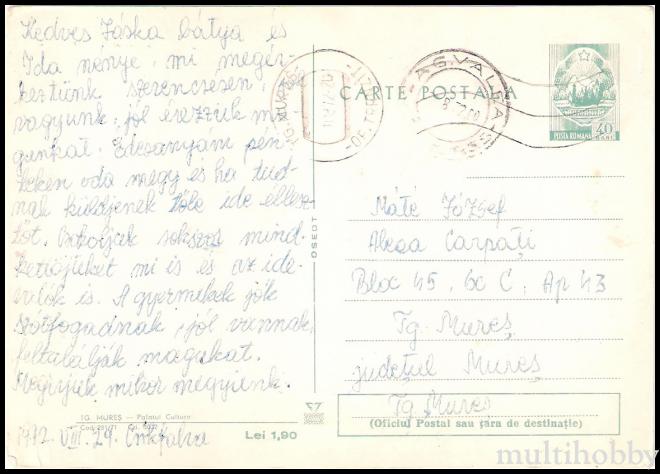 Kedves Jóska bátyá és
Ida nénye, mi megér-
keztünk szerencsésen,
vagyunk, jól érezzük ma-
gunkat. Édesanyám pén-
teken oda megy és ha tud-
nak küldjenek tőle ide élesz-
tőt. Csókoljuk sokszor mind-
kettőjüket mi is és az ide-
valók is. A gyermekek jók
szótfogadnak, jól vannak,
feltalálják magukat.
Megírjuk mikor megyünk.
1972 VIII. 29.
TG. MUREȘ — Palatul Culturii
Lei 1,90
OSEDT
CARTE POSTALA
POSTA ROMANA
40
BANI
Máté József
Aleea Carpați
Bloc 45, sc C, Ap 43
Tg Mureș
județul Mureș
Tg Mureș
(Oficiul Postal sau țara de destinație)
multihobby